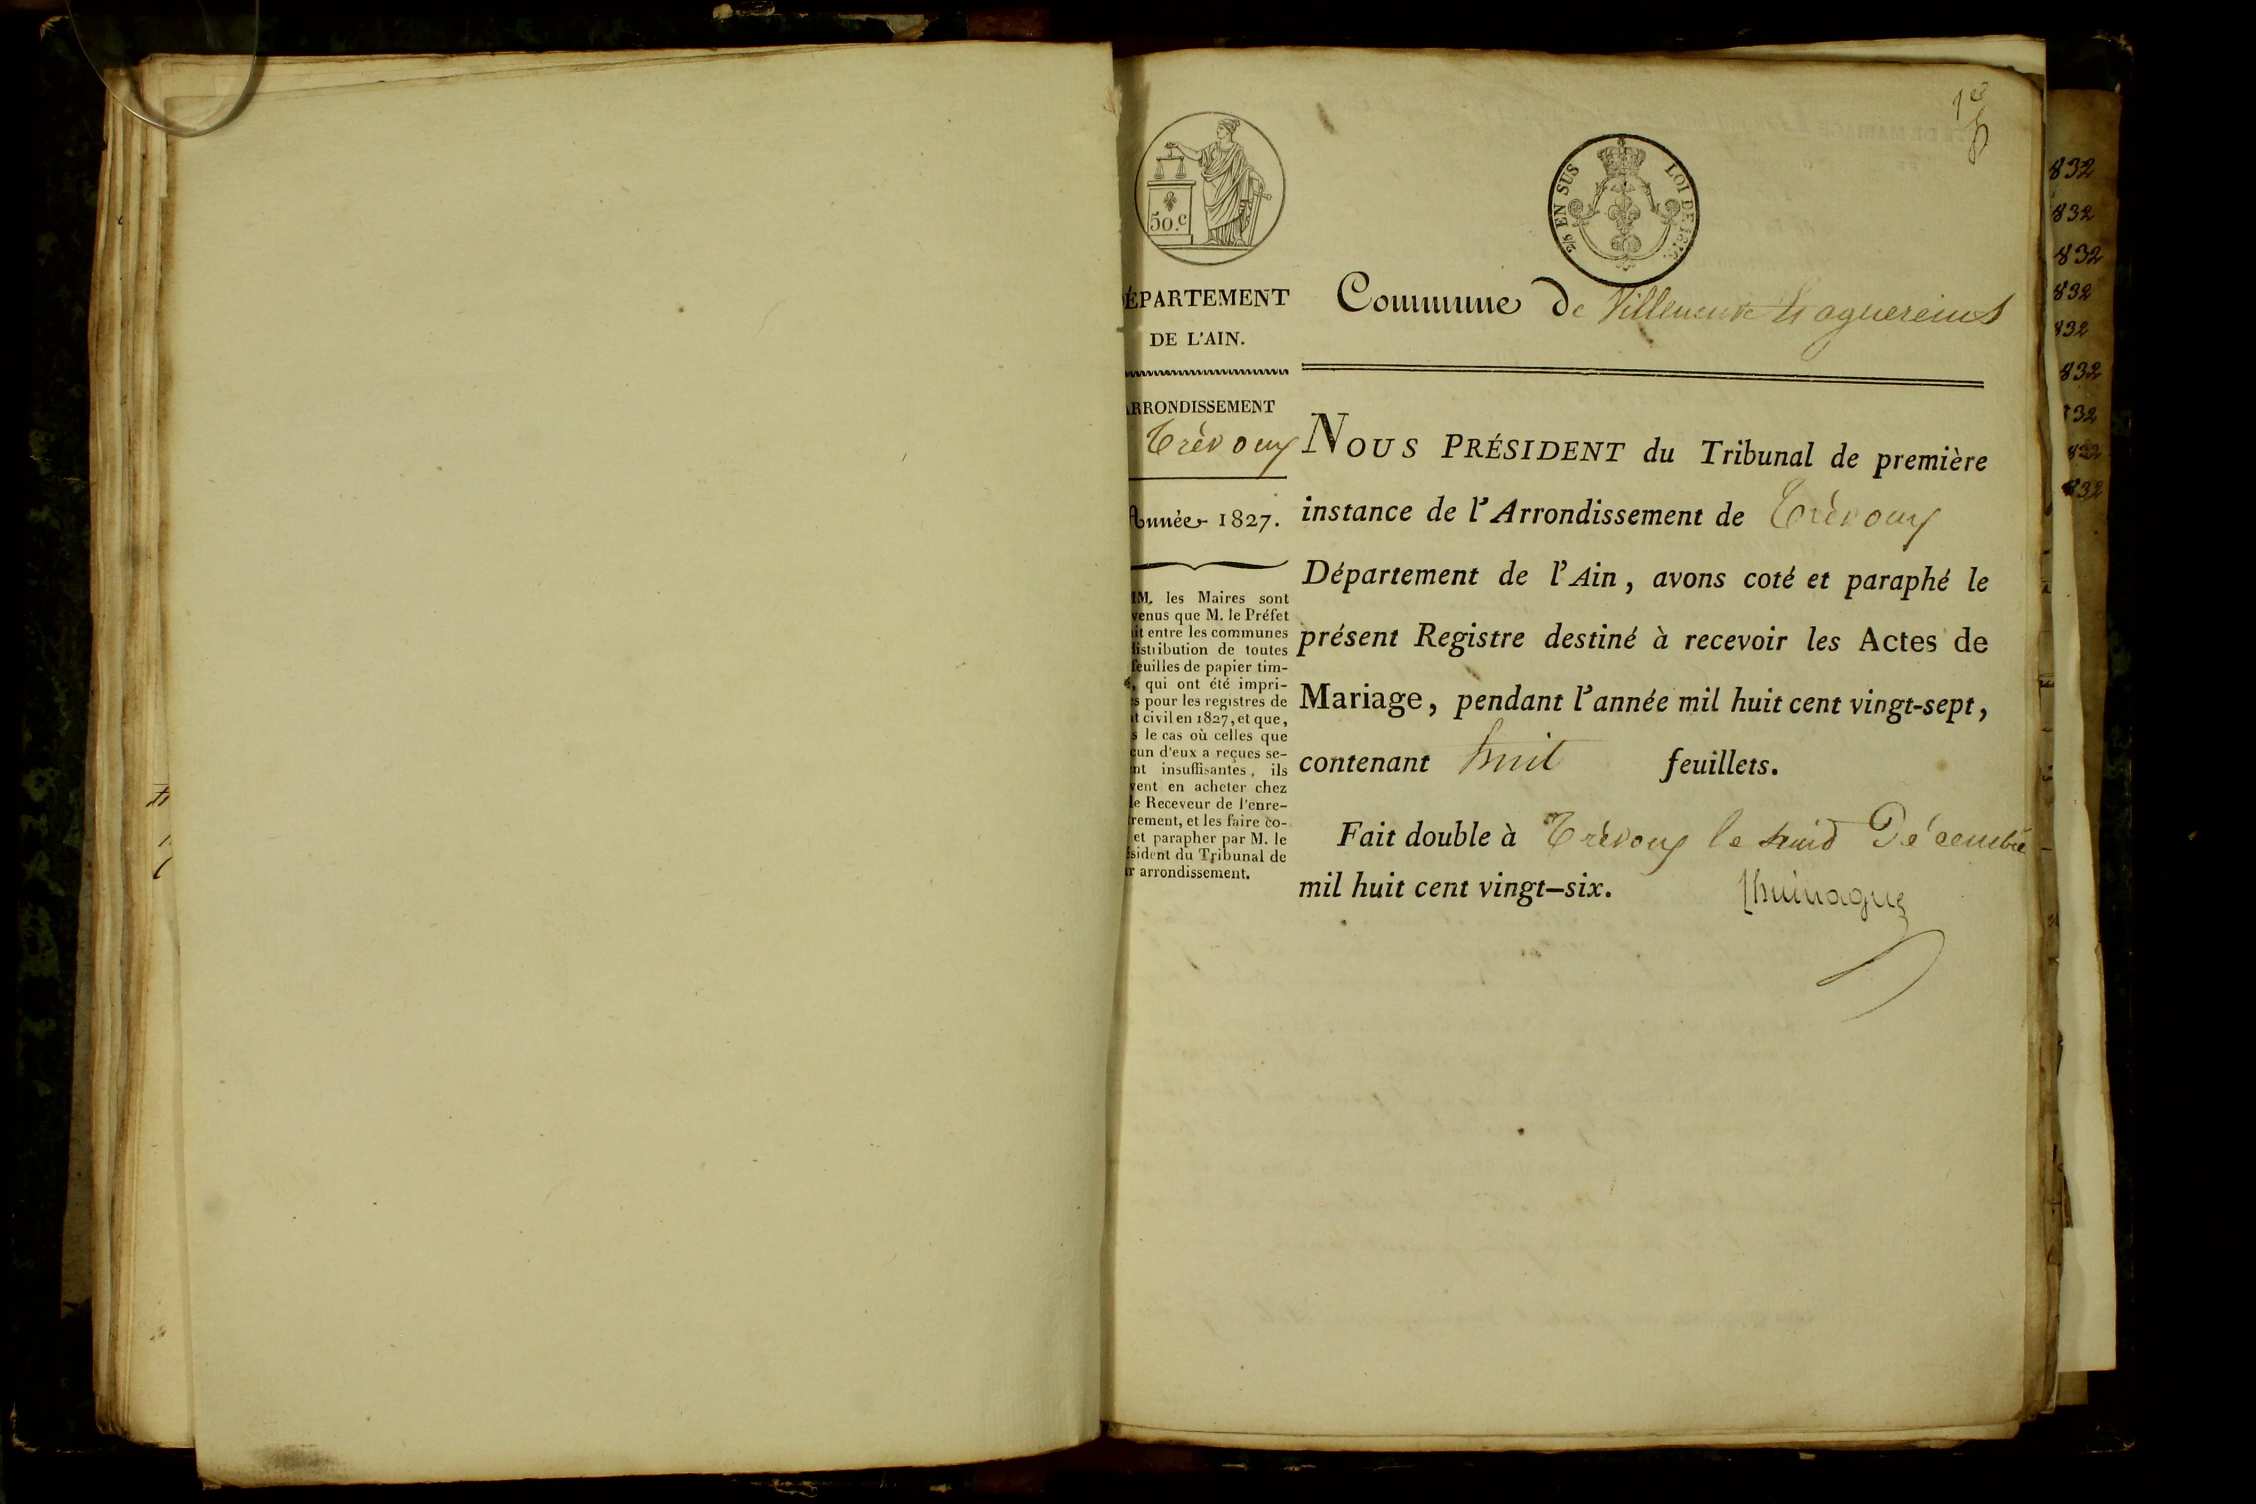 1er
50.c
2/5 EN SUS LOI DE 1816.
ÉPARTEMENT
DE L'AIN.
Commune de Villeneuve
RRONDISSEMENT
Trévoux
Année 1827.
M. les Maires sont
venus que M. le Préfet
it entre les communes
istribution de toutes
feuilles de papier tim-
é, qui ont été impri-
s pour les registres de
t civil en 1827, et que,
s le cas où celles que
cun d'eux a reçues se-
nt insuffisantes, ils
vent en acheter chez
le Receveur de l'enre-
rement, et les faire co-
et parapher par M. le
sident du Tribunal de
r arrondissement.
NOUS PRÉSIDENT du Tribunal de première
instance de l'Arrondissement de Trévoux
Département de l'Ain, avons coté et paraphé le
présent Registre destiné à recevoir les Actes de
Mariage, pendant l'année mil huit cent vingt-sept,
contenant huit feuillets.
Fait double à Trévoux le huit Décembre
mil huit cent vingt-six.
832
832
832
832
832
832
32
832
832